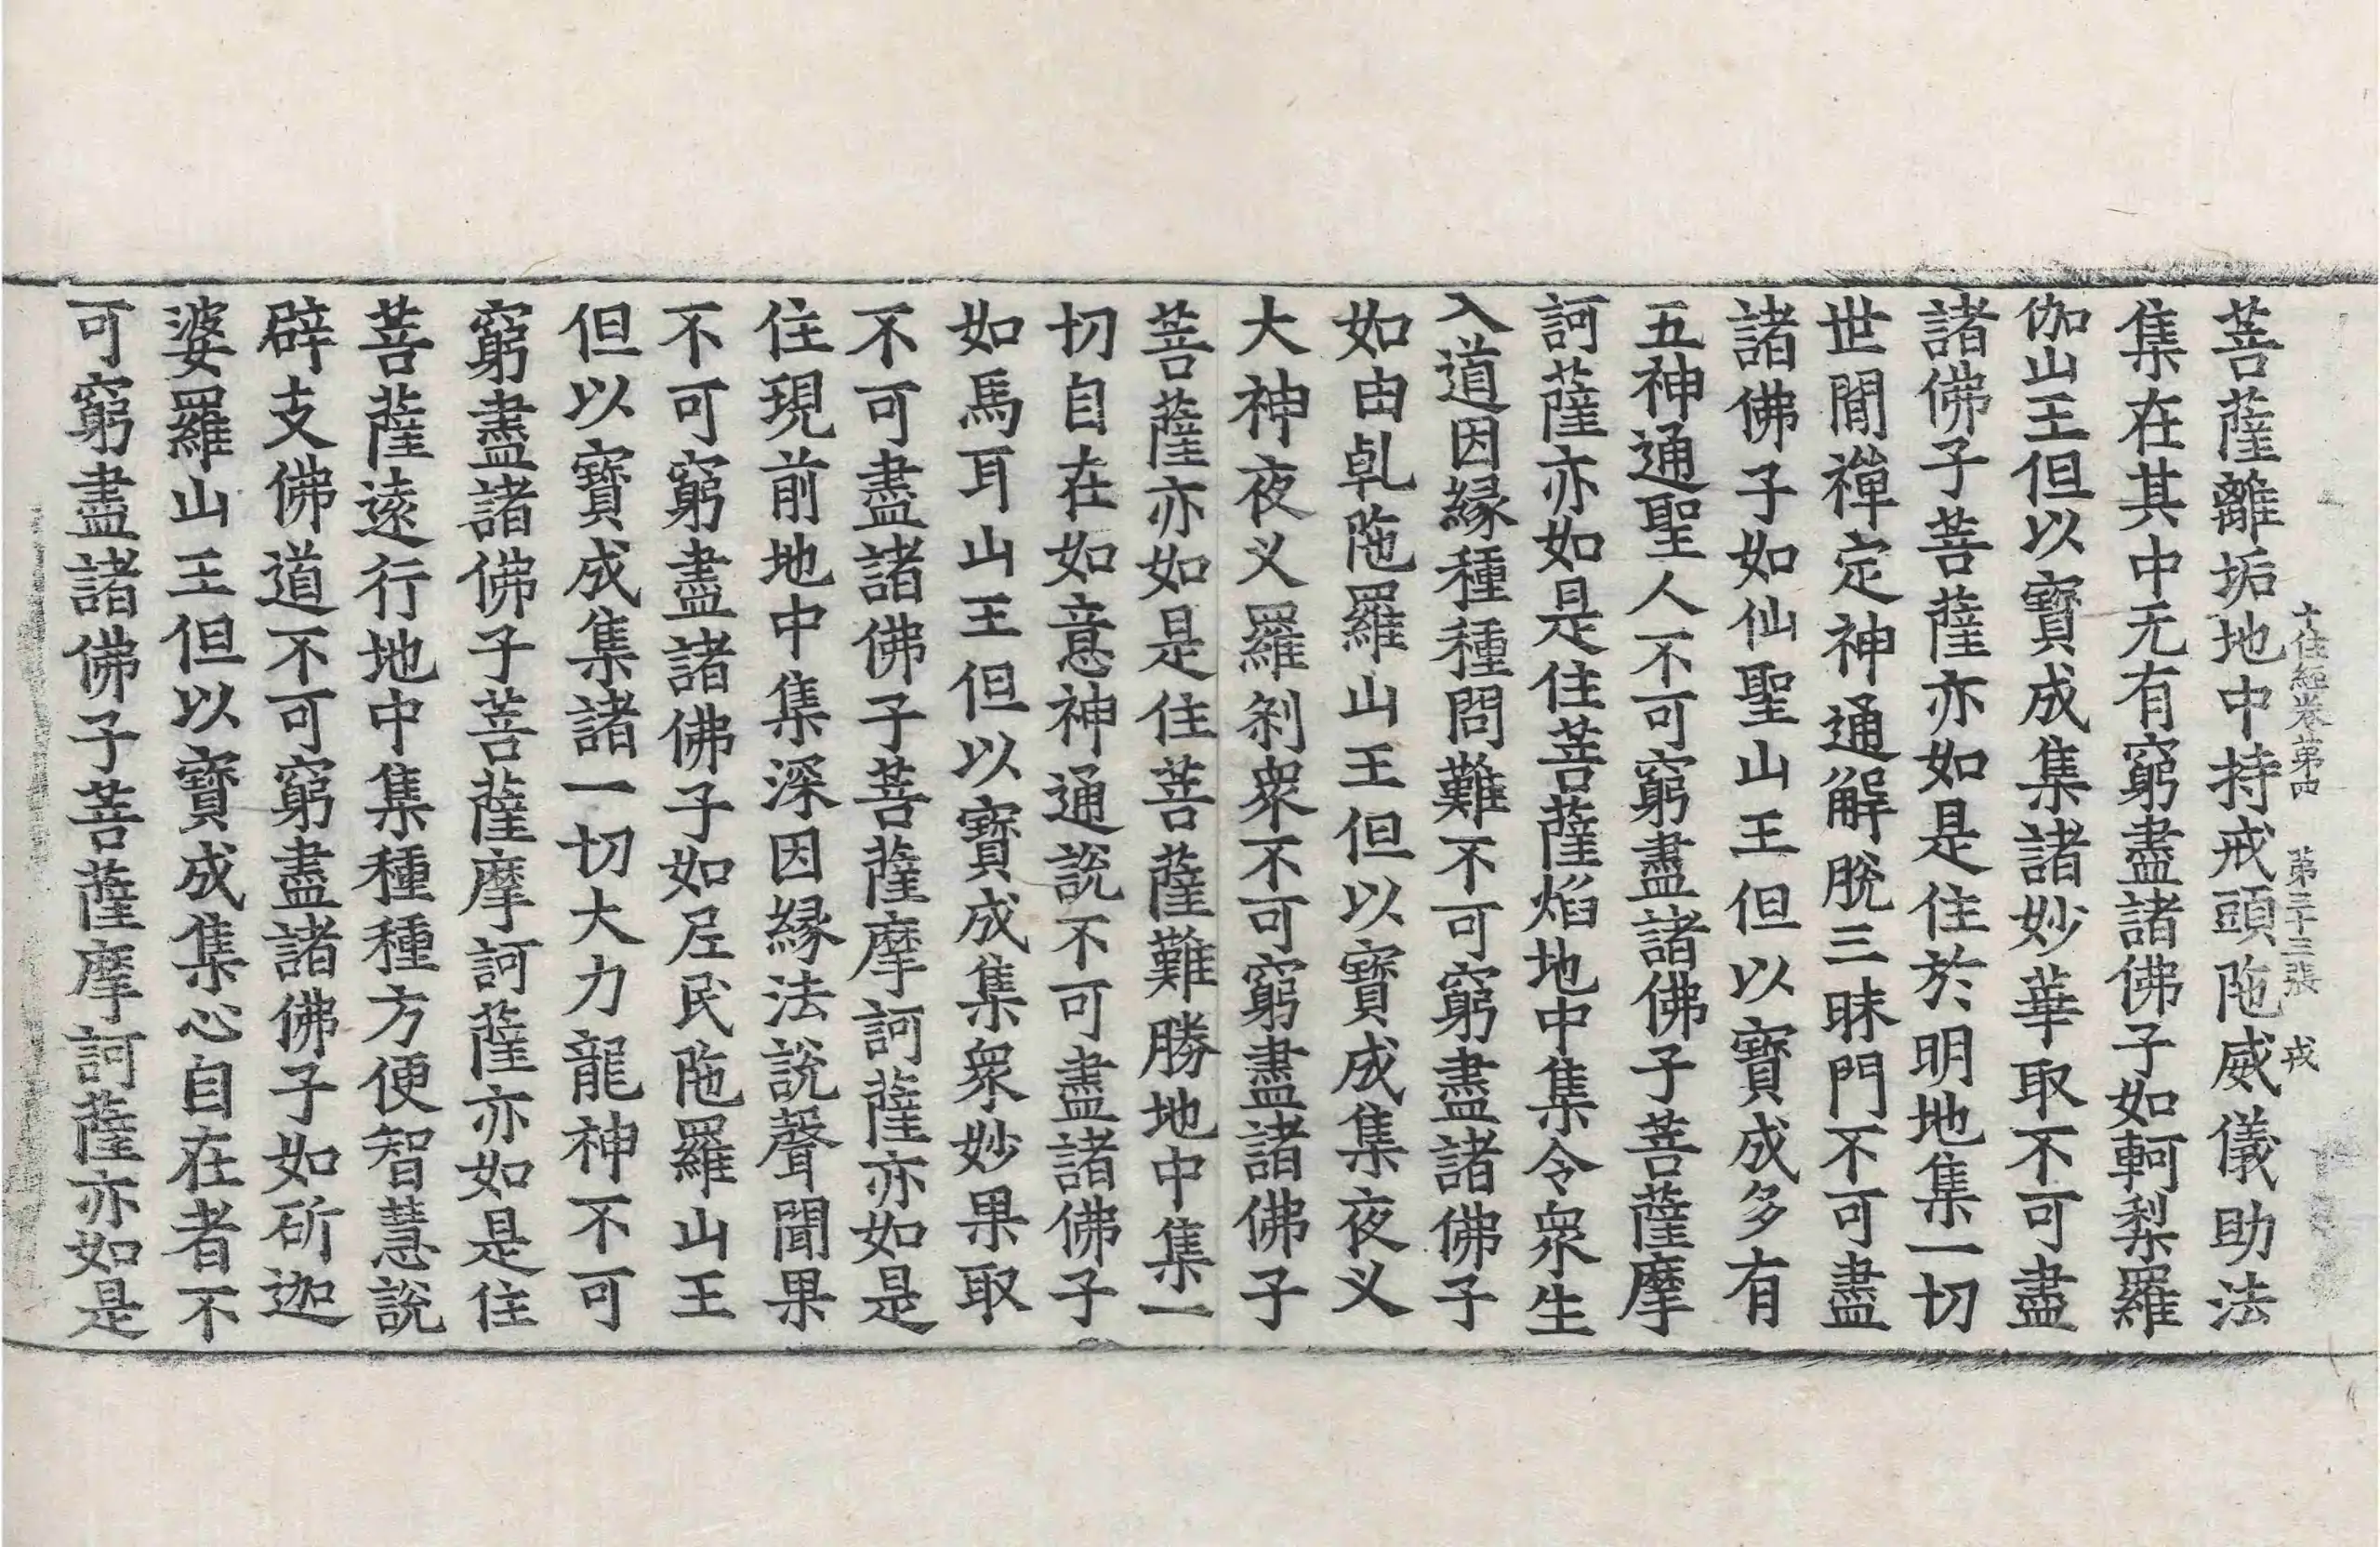 十住經卷第四　第三十三張　戎
菩薩離垢地中持戒頭陁威儀助法
集在其中无有窮盡諸佛子如軻梨羅
伽山王但以寶成集諸妙華取不可盡
諸佛子菩薩亦如是住於明地集一切
世閒禪定神通解脫三昧門不可盡
諸佛子如仙聖山王但以寶成多有
五神通聖人不可窮盡諸佛子菩薩摩
訶薩亦如是住菩薩焰地中集令衆生
入道因緣種種問難不可窮盡諸佛子
如由乹陁羅山王但以寶成集夜义
大神夜义羅剎衆不可窮盡諸佛子
菩薩亦如是住菩薩難勝地中集一
切自在如意神通說不可盡諸佛子
如馬耳山王但以寶成集衆妙果取
不可盡諸佛子菩薩摩訶薩亦如是
住現前地中集深因緣法說聲聞果
不可窮盡諸佛子如㞐民陁羅山王
但以寶成集諸一切大力龍神不可
窮盡諸佛子菩薩摩訶薩亦如是住
菩薩遠行地中集種種方便智慧說
辟支佛道不可窮盡諸佛子如斫迦
婆羅山王但以寶成集心自在者不
可窮盡諸佛子菩薩摩訶薩亦如是